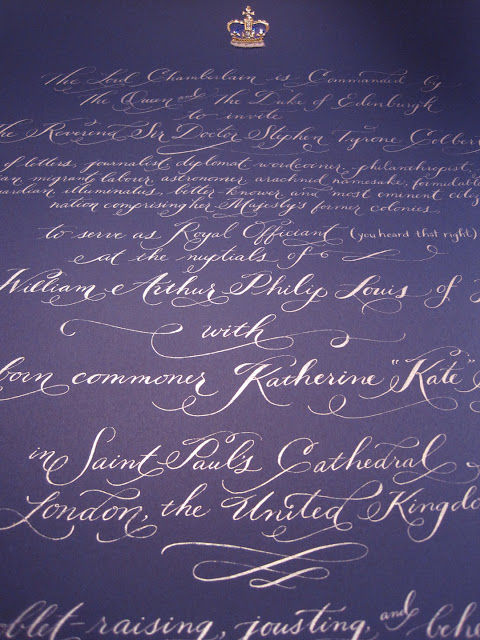 The Lord Chamberlain is Commanded by
the Queen and the Duke of Edinburgh
to invite
he Reverend Sir Doctor Stephen Tyrone Colbert
of letters, journalist, diplomat, wordcoiner, philanthropist,
an migrant labour, astronomer, arachnid namesake, formidable
ardian illuminatus, better-knower and most eminent citiz
nation comprising her Majesty's former colonies
to serve as Royal Officiant (you heard that right)
at the nuptials of
William Arthur Philip Louis of
with
born commoner Katherine "Kate"
in Saint Paul's Cathedral
London, the United Kingdo
oblet-raising, jousting, and beh